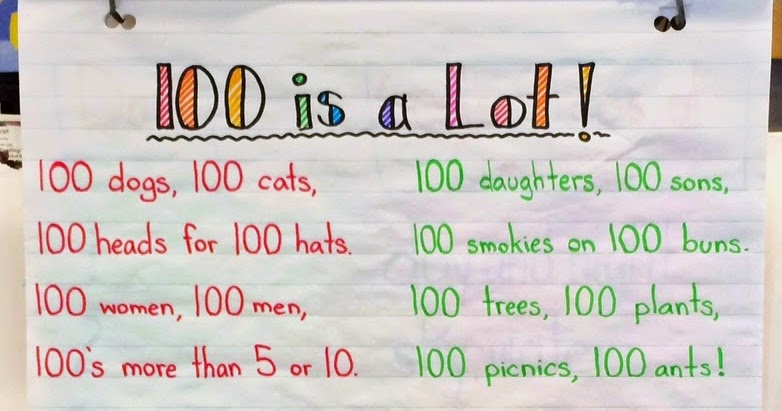 100 is a Lot!
100 dogs, 100 cats,
100 heads for 100 hats.
100 women, 100 men,
100's more than 5 or 10.
100 daughters, 100 sons,
100 smokies on 100 buns.
100 trees, 100 plants,
100 picnics, 100 ants!